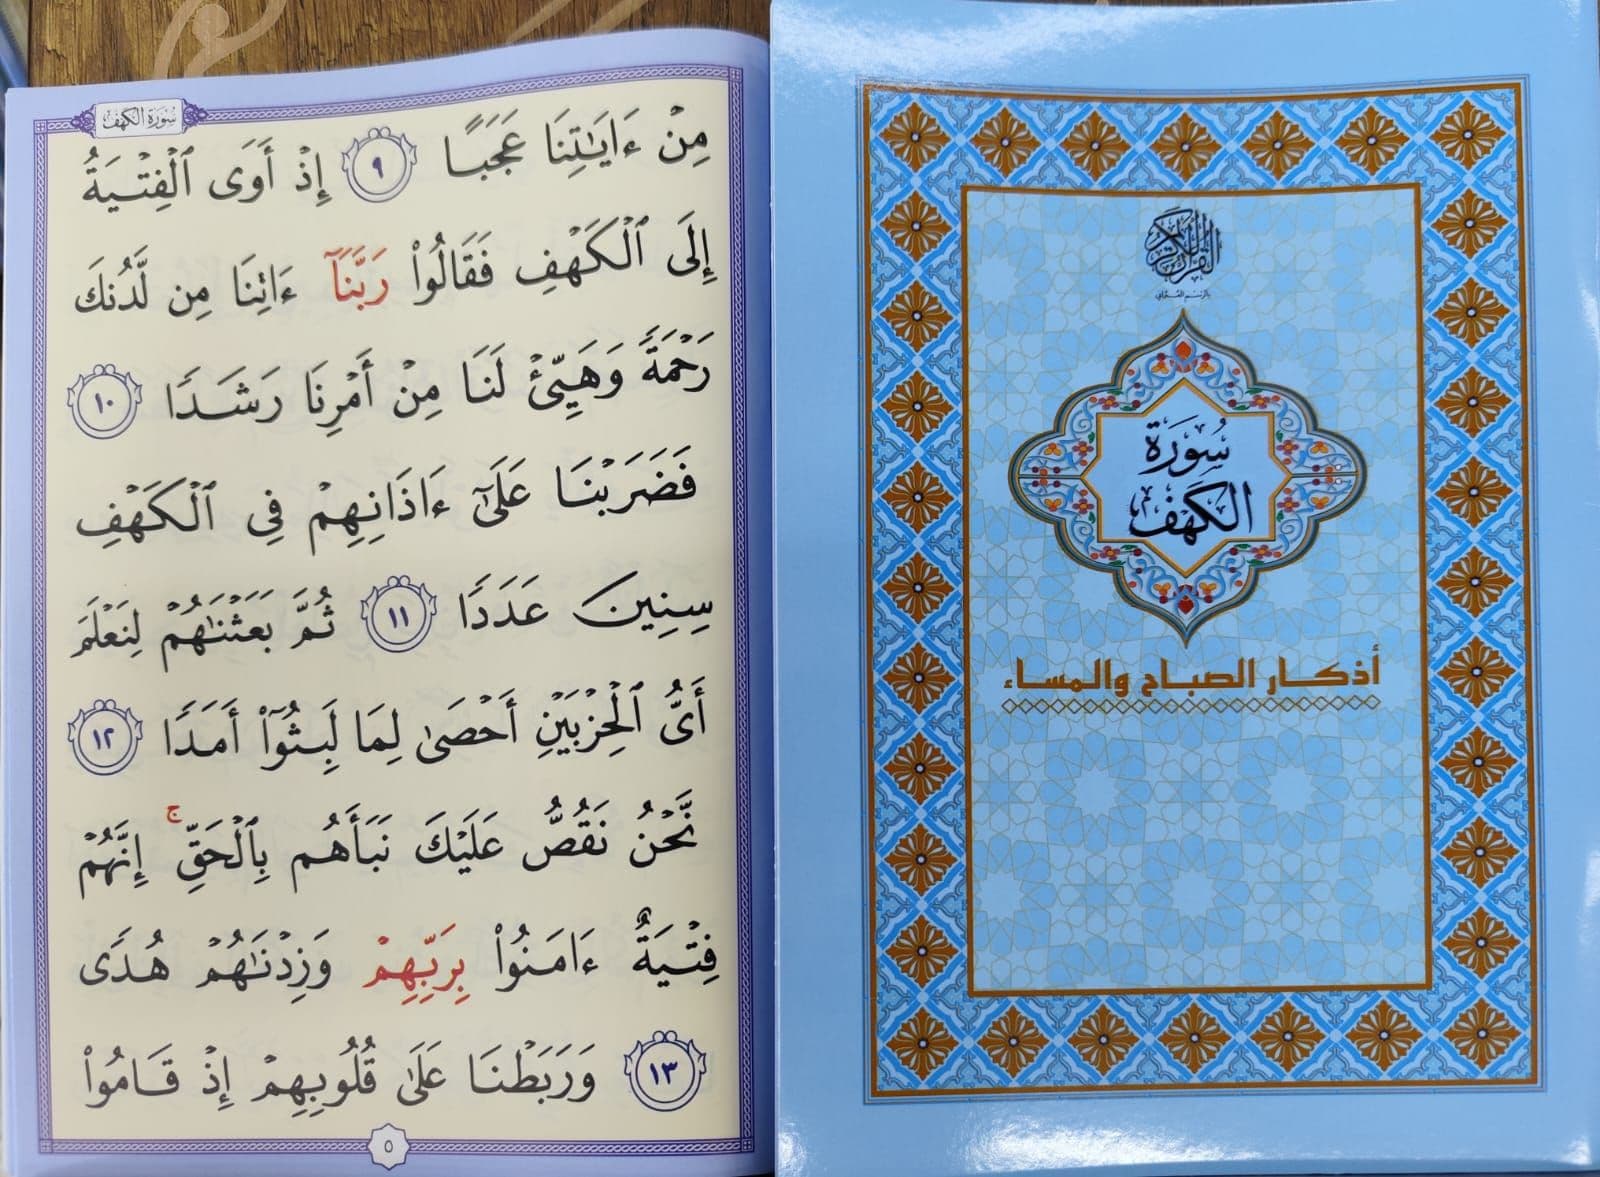 سُورَةُ الكَهْفِ
مِنْ ءَايَٰتِنَا عَجَبًا ٩ إِذْ أَوَى ٱلْفِتْيَةُ
إِلَى ٱلْكَهْفِ فَقَالُوا۟ رَبَّنَآ ءَاتِنَا مِن لَّدُنكَ
رَحْمَةً وَهَيِّئْ لَنَا مِنْ أَمْرِنَا رَشَدًا ١٠
فَضَرَبْنَا عَلَىٰٓ ءَاذَانِهِمْ فِى ٱلْكَهْفِ
سِنِينَ عَدَدًا ١١ ثُمَّ بَعَثْنَٰهُمْ لِنَعْلَمَ
أَىُّ ٱلْحِزْبَيْنِ أَحْصَىٰ لِمَا لَبِثُوٓا۟ أَمَدًا ١٢
نَّحْنُ نَقُصُّ عَلَيْكَ نَبَأَهُم بِٱلْحَقِّ ۚ إِنَّهُمْ
فِتْيَةٌ ءَامَنُوا۟ بِرَبِّهِمْ وَزِدْنَٰهُمْ هُدًى
١٣ وَرَبَطْنَا عَلَىٰ قُلُوبِهِمْ إِذْ قَامُوا۟
٥
القرآن الكريم
بالرسم العثماني
سُورَة
الكَهْف
أذكار الصباح والمساء